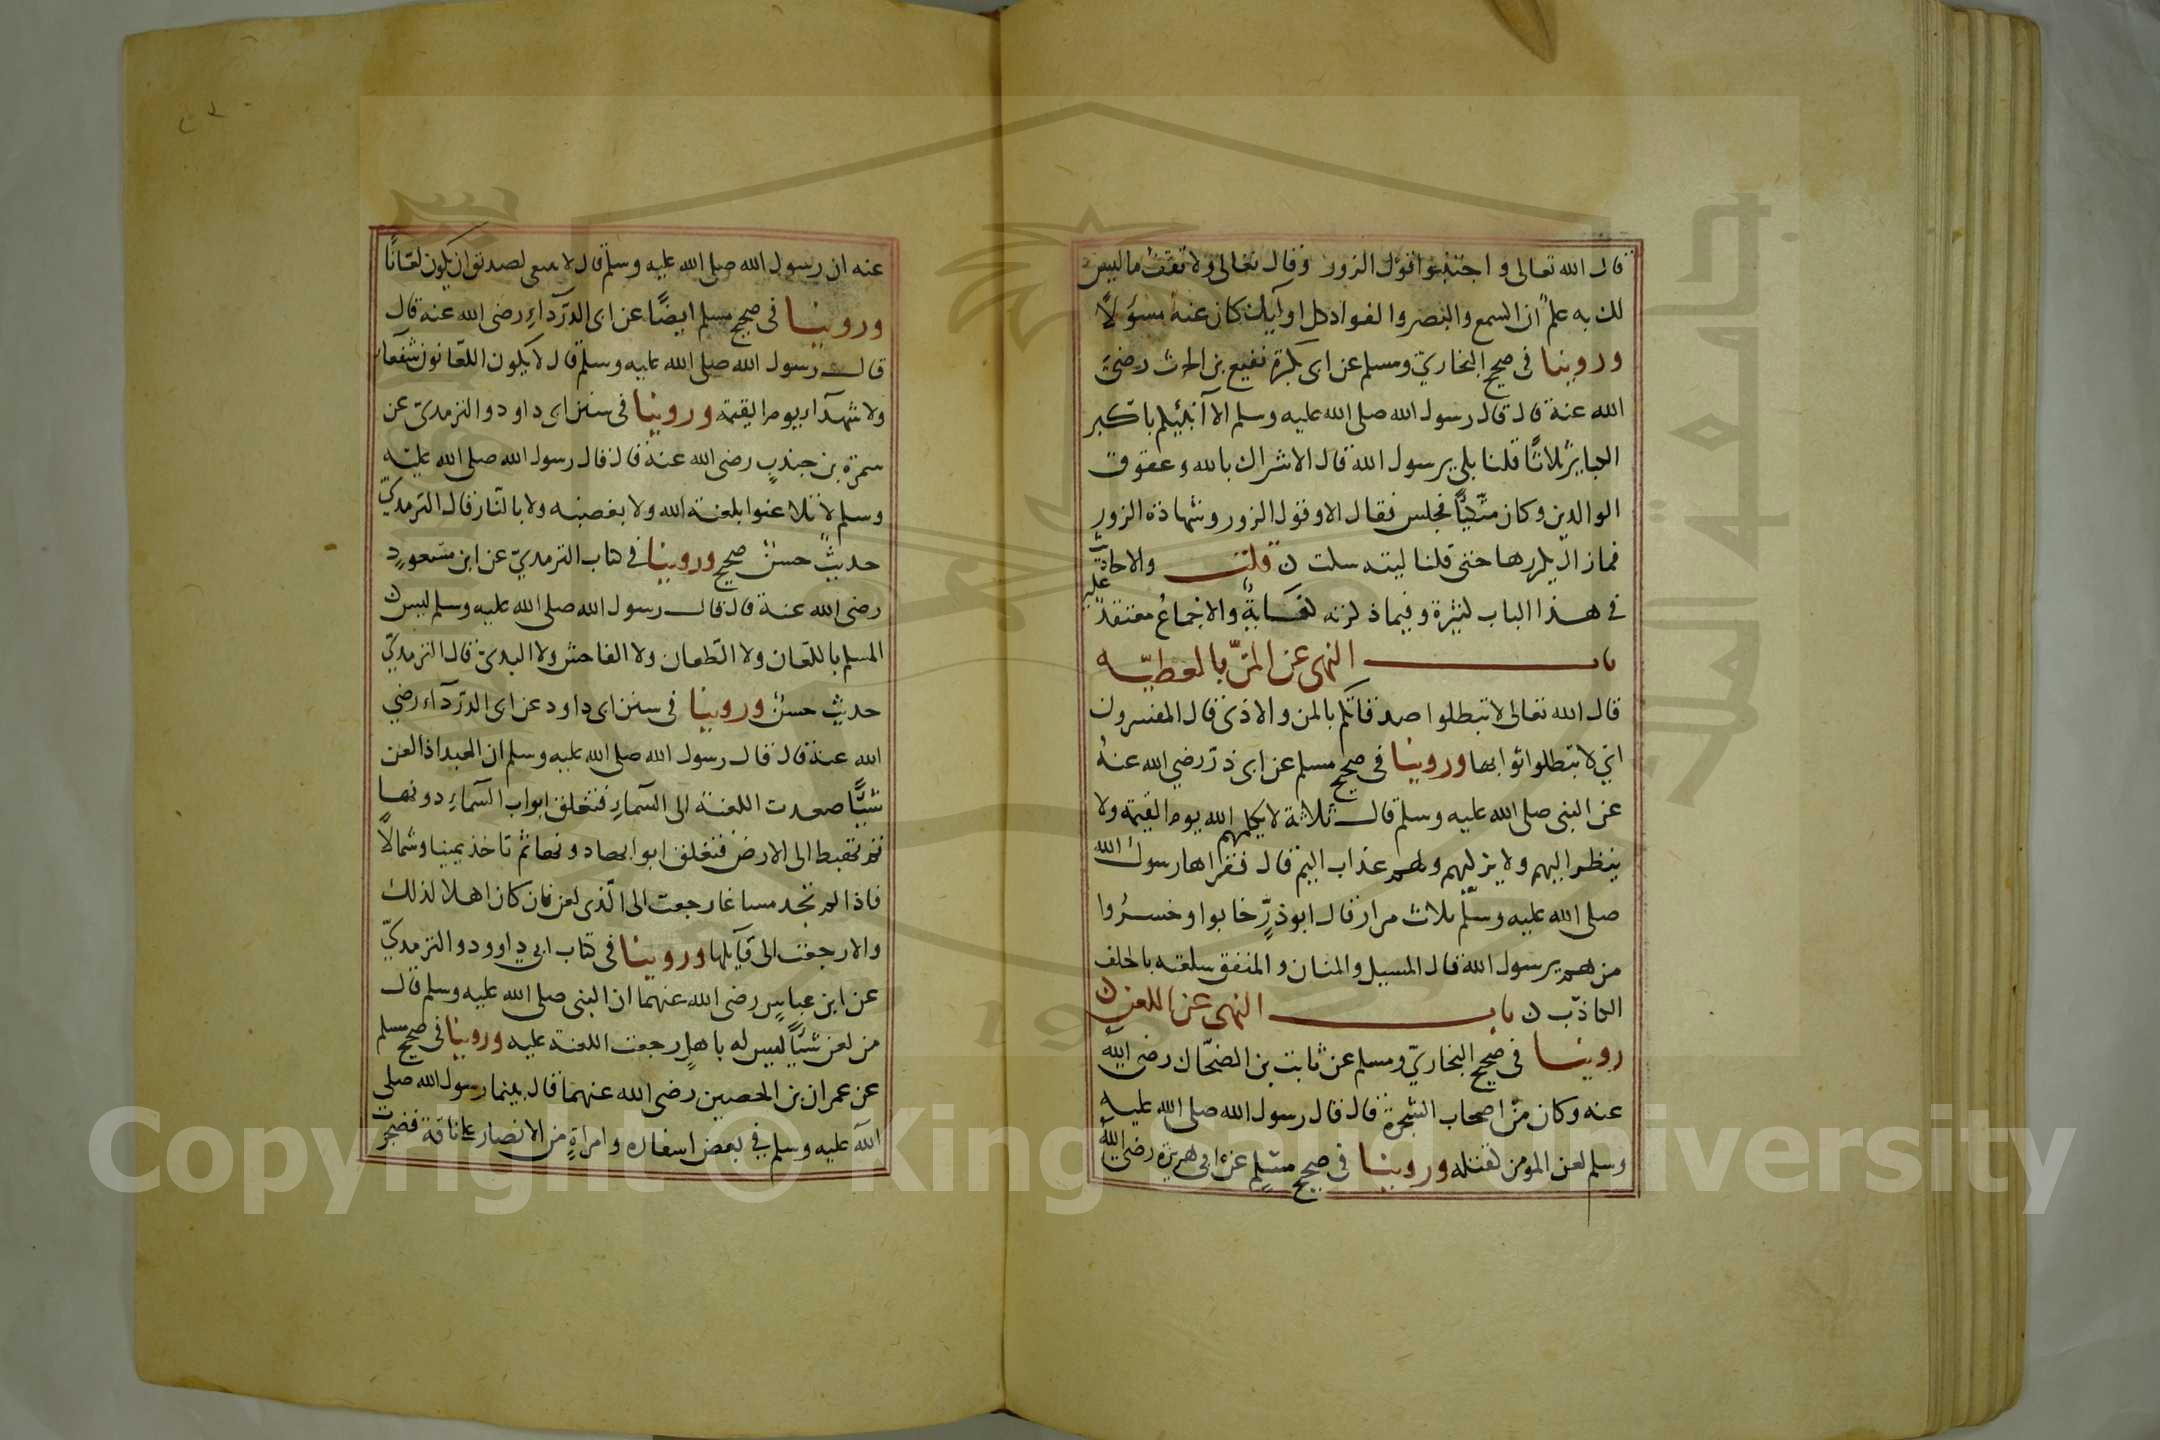 قال الله تعالى واجتنبوا قول الزور وقال تعالى ولا تقف ما ليس
لك به علم ان السمع والبصر والفواد كل اولئك كان عنه مسؤلا
وروينا في صحيح البخاري ومسلم عن ابى بكرة نفيع بن الحرث رضي
الله عنه قال قال رسول الله صلى الله عليه وسلم الا انبئكم باكبر
الكباير ثلاثا قلنا بلى يرسول الله قال الاشراك بالله وعقوق
الوالدين وكان متكئا فجلس فقال الا وقول الزور وشهادة الزور
فما زال يكررها حتى قلنا ليته سكت ن قلت والاحاديث
في هذا الباب كثيرة وفيما ذكرته كفاية والاجماع منعقد عليه
باب النهى عن المن بالعطيه
قال الله تعالى لا تبطلوا صدقاتكم بالمن والاذى قال المفسرون
اي لا تبطلوا ثوابها وروينا في صحيح مسلم عن ابى ذر رضي الله عنه
عن النبى صلى الله عليه وسلم قال ثلاثة لا يكلمهم الله يوم القيمة ولا
ينظر اليهم ولا يزكيهم ولهم عذاب اليم قال فقراها رسول الله
صلى الله عليه وسلم ثلاث مرار قال ابو ذر خابوا وخسروا
من هم يرسول الله قال المسبل والمنان والمنفق سلعته بالحلف
الكاذب ن باب النهى عن اللعن
روينا في صحيح البخاري ومسلم عن ثابت بن الضحاك رضى الله
عنه وكان من اصحاب الشجرة قال قال رسول الله صلى الله عليه
وسلم لعن المومن كقتله وروينا في صحيح مسلم عن ابى هريرة رضى الله
عنه ان رسول الله صلى الله عليه وسلم قال لا ينبغى لصديق ان يكون لعانا
وروينا في صحيح مسلم ايضا عن ابى الدرداء رضى الله عنه قال
قال رسول الله صلى الله عليه وسلم قال لا يكون اللعانون شفعاء
ولا شهداء يوم القيمة وروينا في سنن ابى داود والترمذي عن
سمرة بن جندب رضى الله عنه قال قال رسول الله صلى الله عليه
وسلم لا تلاعنوا بلعنة الله ولا بغضبه ولا بالنار قال الترمذي
حديث حسن صحيح وروينا في كتاب الترمذي عن ابن مسعود
رضى الله عنه قال قال رسول الله صلى الله عليه وسلم ليس
المسلم باللعان ولا الطعان ولا الفاحش ولا البذى قال الترمذي
حديث حسن وروينا في سنن ابى داود عن ابى الدرداء رضي
الله عنه قال قال رسول الله صلى الله عليه وسلم ان العبد اذا لعن
شيئا صعدت اللعنة الى السماء فتغلق ابواب السماء دونها
ثم تهبط الى الارض فتغلق ابوابها دونها ثم تاخذ يمينا وشمالا
فاذا لم تجد مساغا رجعت الى الذى لعن فان كان اهلا لذلك
والا رجعت الى قآئلها وروينا في كتاب ابي داوود والترمذي
عن ابن عباس رضى الله عنهما ان النبى صلى الله عليه وسلم قال
من لعن شيئا ليس له باهل رجعت اللعنة عليه وروينا في صحيح مسلم
عن عمران بن الحصين رضى الله عنهما قال بينما رسول الله صلى
الله عليه وسلم في بعض اسفاره وامراة من الانصار على ناقة فضجرت
Copyright © King Saud University
جامعة الملك سعود
1957